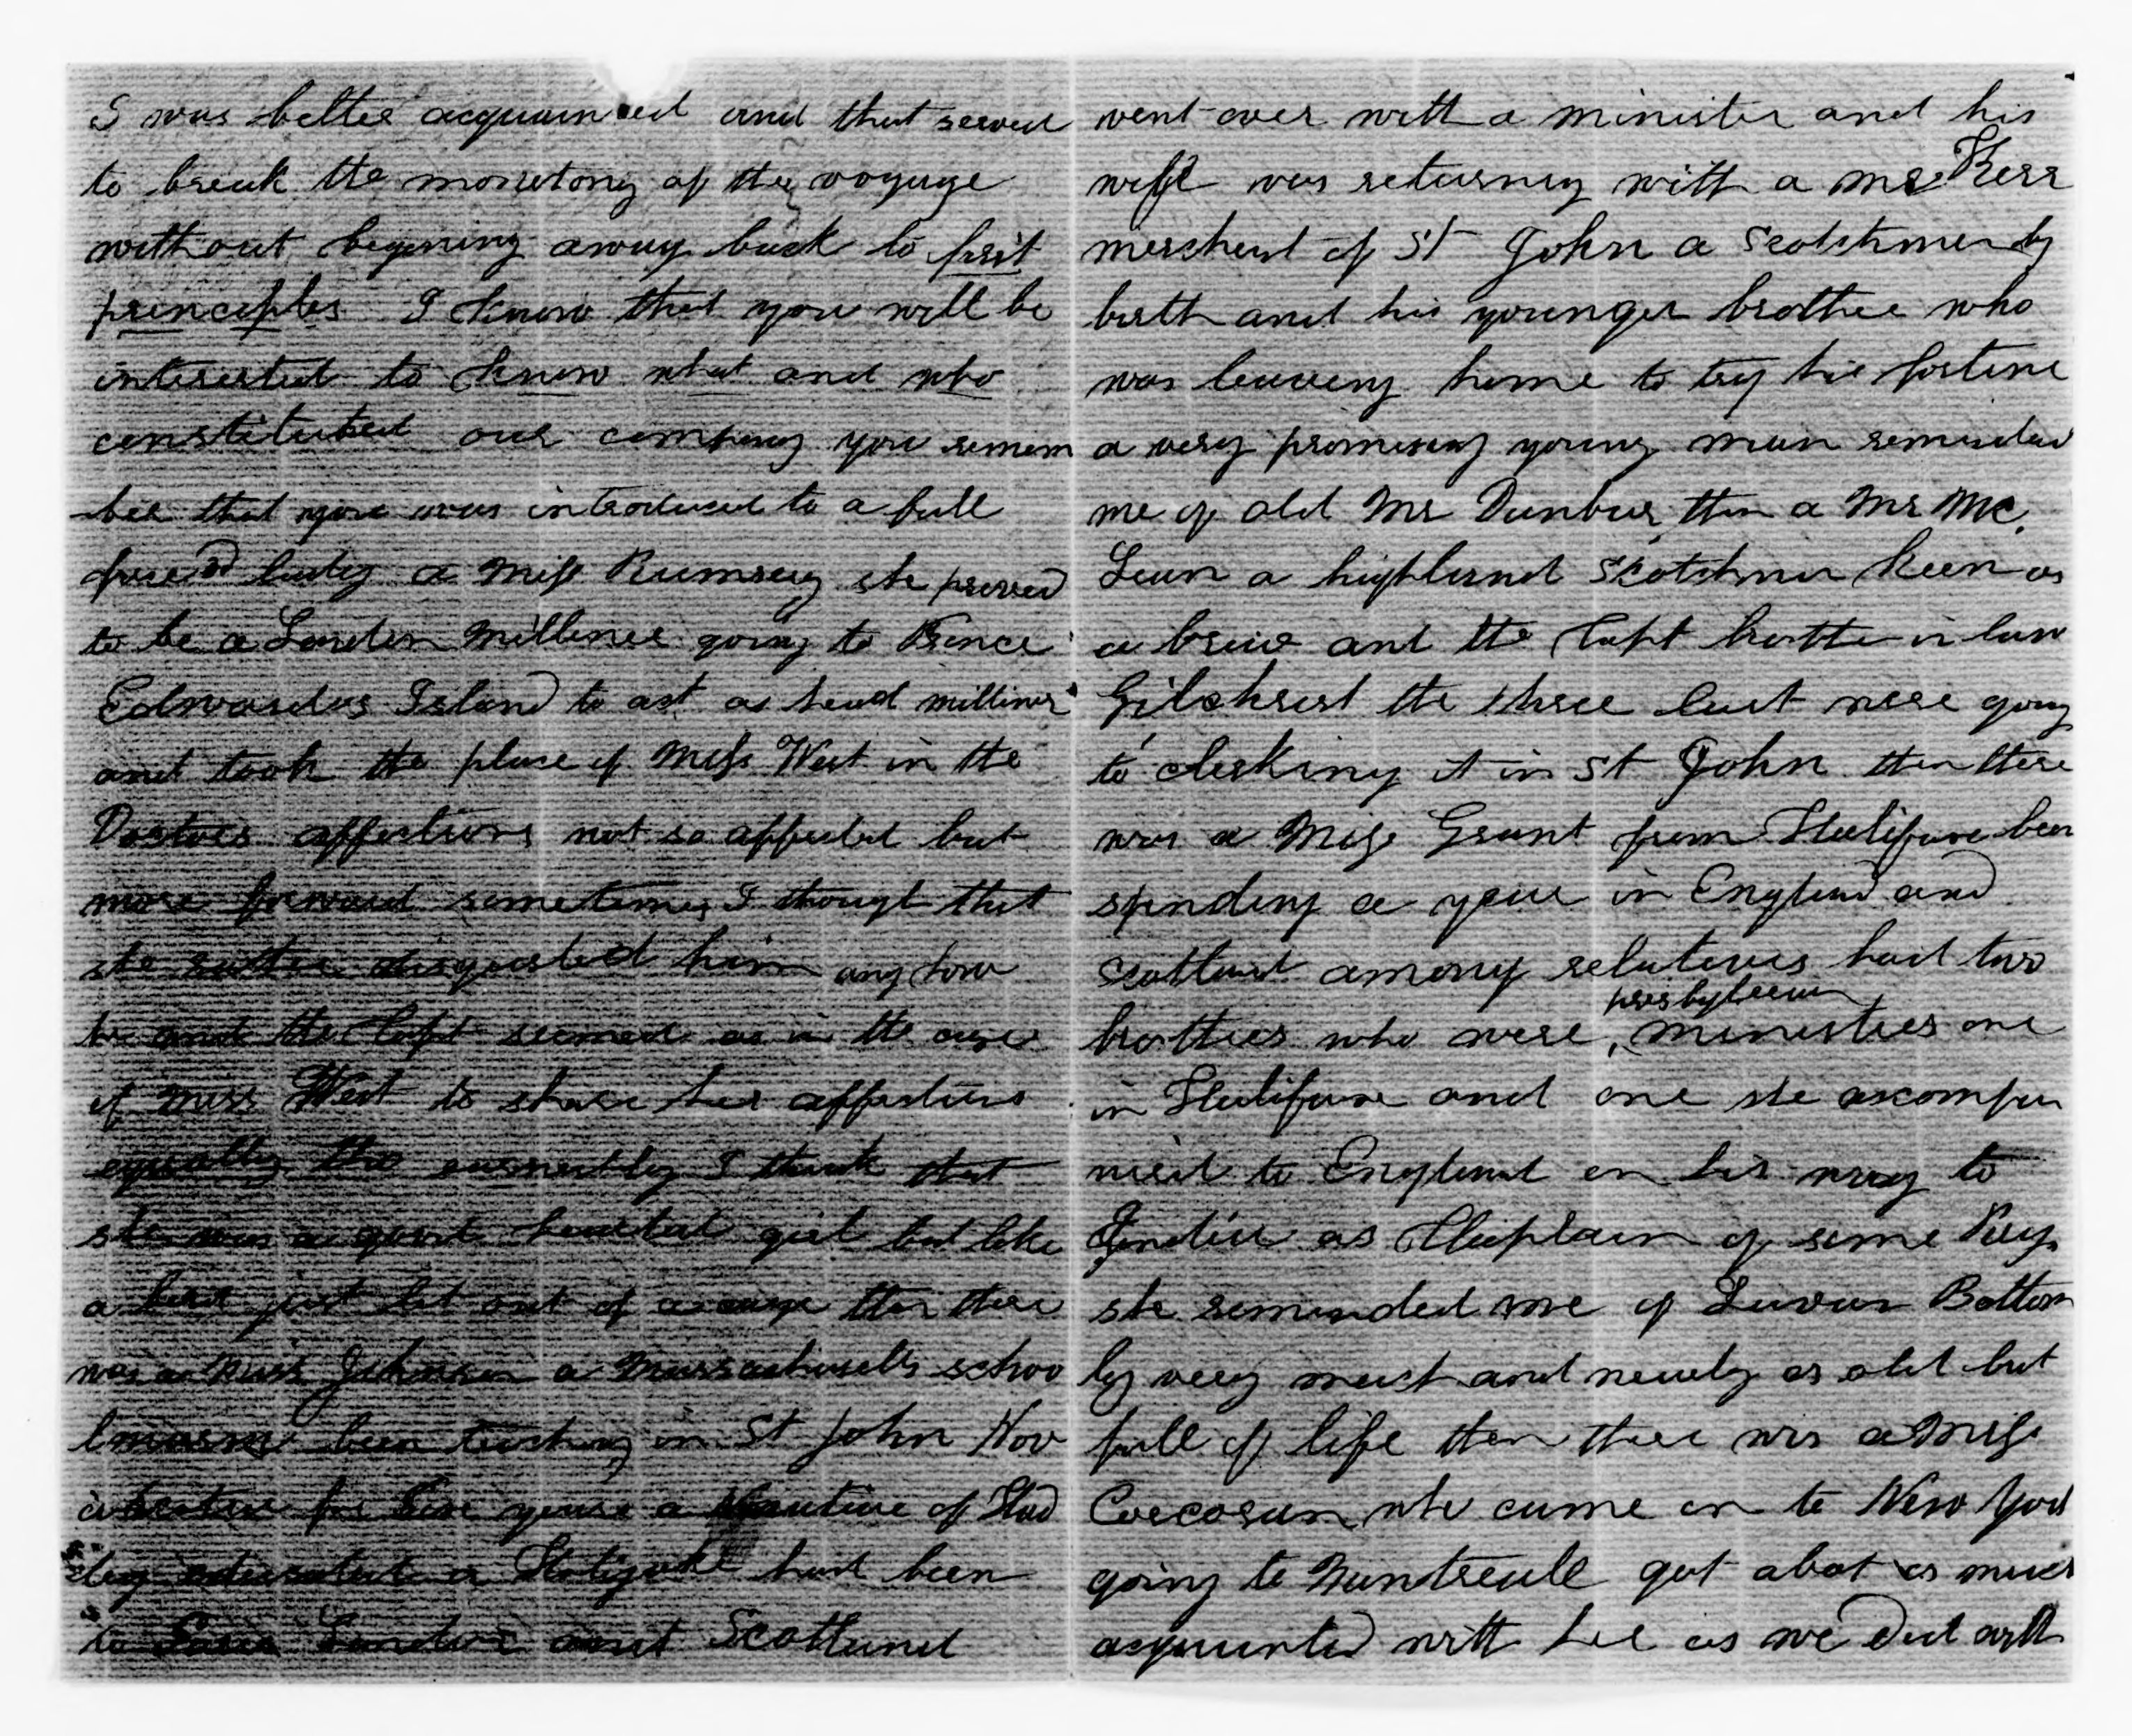 I was better acquainted and that served
to break the monotony of the voyage
without begining away back to first
principles I know that you will be
interested to know what and who
constituted our company you remem
ber that you was introduced to a full
faced lady a Miss Rumsey she proved
to be a London Milliner going to Prince
Edwards Island to act as head milliner
and took the place of Miss West in the
Doctors affections not so affected but
more forward sometimes I though that
she rather disgusted him any how
he and the Capt seemed as in the case
of Miss West to share her affections
equally tho earnestly I think that
she was a good hearted girl but like
a bird just let out of a cage then there
was a Miss Johnson a Massachusetts schoo
lmarm been teaching in St John Nov
a Scotia for five years a native of Had
ley educated a Holyoke had been
to Paris London and Scotland
went over with a minister and his
wife was returning with a Mr Kerr
merchant of St John a Scotchman by
birth and his younger brother who
was leaving home to try his fortune
a very promising young man reminded
me of old Mr Dunbar then a Mr Mc.
Lean a highland Scotchman keen as
a briar and the Capt brother in law
Gilchrist the three last were going
to clerking it in St John then there
was a Miss Grant from Halifax been
spending a year in England and
Scotland among relatives had two
brothers who were presbyterian ministers one
in Halifax and one she accompa
nied to England on his way to
India as Chaplain of some Reg.
she reminded me of Bottom
ly very much and nearly as old but
full of life then there was a Miss
Corcoran who came on to New York
going to Muntreall got abot as much
acquainted with her as we did with